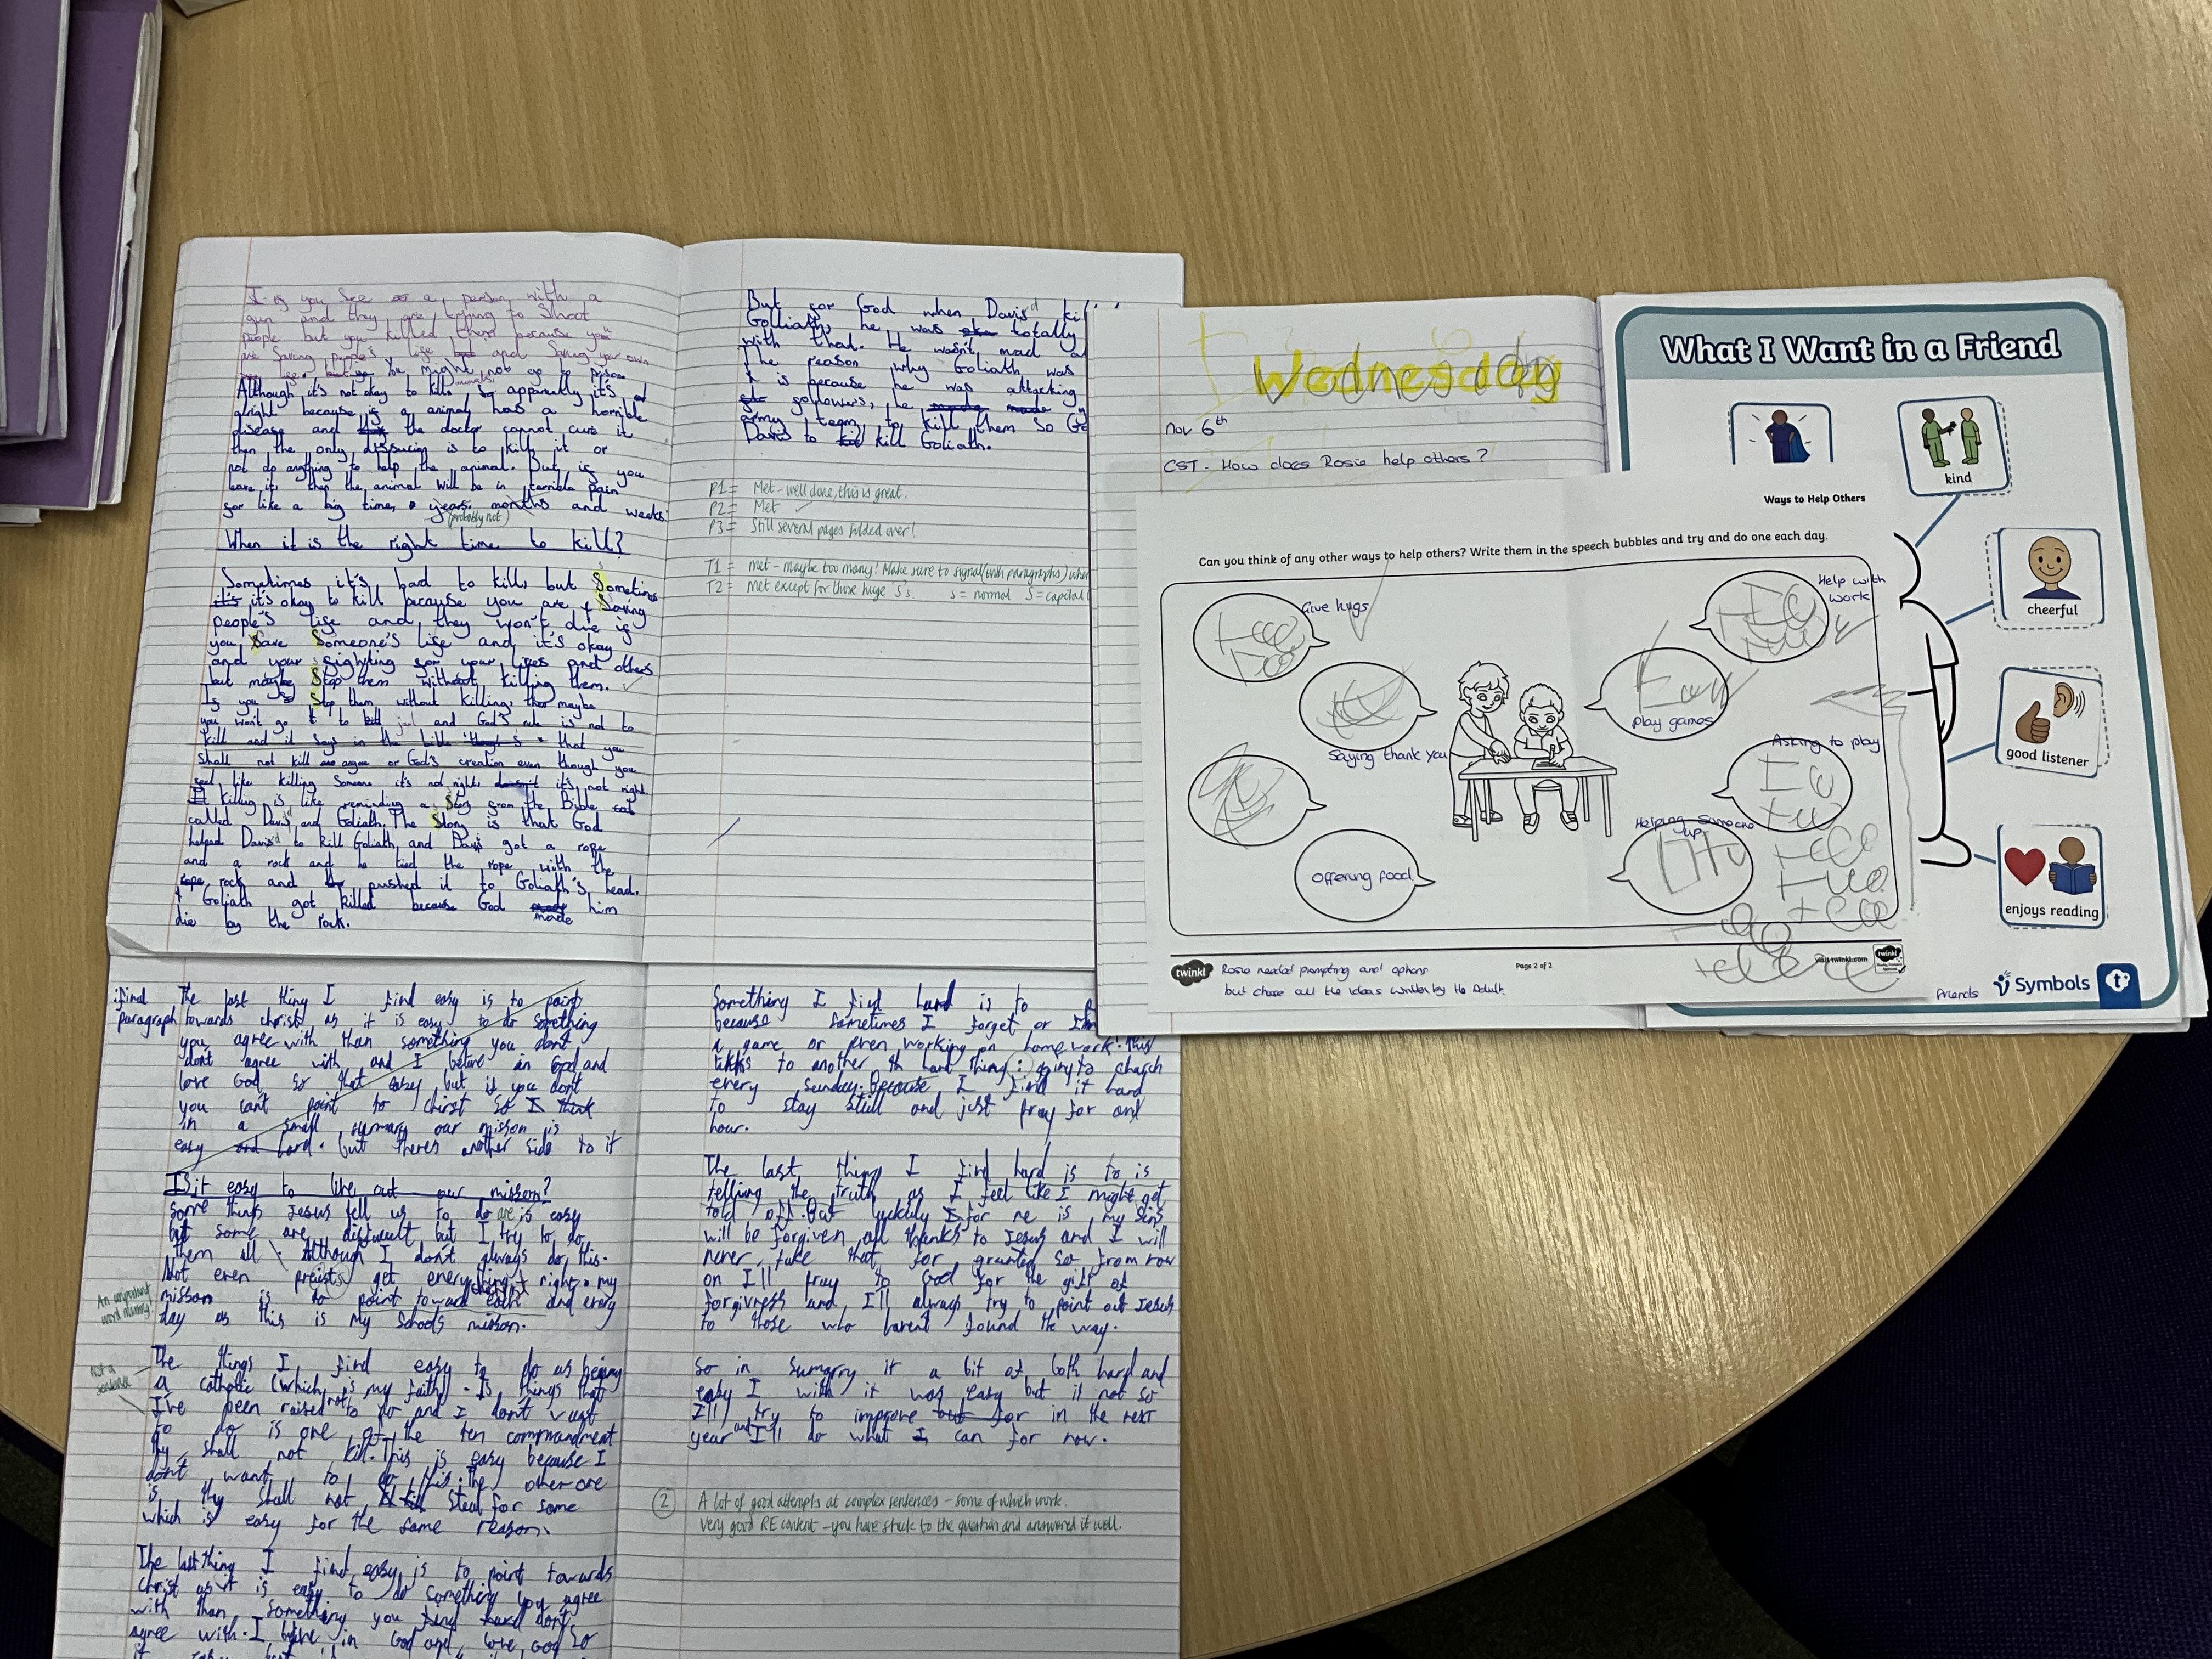 It is you See a person with a
gun and they are trying to Shoot
people but you killed them because you
are Saving people's lise and Saving your own
lise. he might not go to prison
Although it's not okay to kills animals, apparently it's
alright because is a animal has a horrible
disease and the doctor cannot cure it
then the only is to kill it or
not do anything to help the animal. But is you
leave it then the animal will be in terrible pain
sor like a big time, years, months and weeks.
(probably not)
When it is the right time to kill?
Sometimes it's bad to kill, but Sometimes
it's it's okay to kill because you are Saving
people's lise and they won't die is
you Save Someone's lise and it's okay
and your sighting sor your lises and others
but maybe Stop them without killing them.
Is you Stop them without killing, maybe
you won't go to jail and God's rule is not to
kill and it says in the bible that you
shall not kill or God's creation even though you
seel like killing Someone it's not right it's not right.
It killing is like reminding a Story srom the Bible
called David and Goliath. The Story is that God
helped David to kill Goliath, and Davis got a rope
and a rock and he tied the rope with the
rope rock and pushed it to Goliath's head.
Goliath got killed because God made him
die by the rock.
But sor God when David ki
Golliath, he was totally
with that. He wasn't mad a
The reason why Goliath was
is because he was attacking
sollowers, he made
army team, to kill them so Go
Davis to kill Goliath.
P1 = Met - well done, this is great.
P2 = Met
P3 = Still several pages folded over!
T1 = met - maybe too many! Make sure to signal (with paragraphs) when
T2 = Met except for those huge Ss. s = normal S = capital
Wednesday
Nov 6th
CST. How does Rosie help others?
Ways to Help Others
Can you think of any other ways to help others? Write them in the speech bubbles and try and do one each day.
Give hugs
Help with
work
play games
Saying thank you
Asking to play
Helping someone
up
offering food
twinkl
Page 2 of 2
visit twinkl.com
Rosie needed prompting and options
but chose all the ideas written by the Adult.
What I Want in a Friend
kind
cheerful
good listener
enjoys reading
Friends
Symbols
find
paragraph
The last thing I find easy is to point
towards christ as it is easy to do something
you agree with than something you dont
dont agree with and I belive in God and
love God so that easy but if you dont
you cant point to chirst so I think
in a small sumary our misson is
easy and hard. but theres another side to it
Is it easy to live out our misson?
Some things Jesus tell us to do are is easy
but some are difficult but I try to do
them all Although I dont always do this.
Not even preists get everything right. my
misson is to point toward each and every
day as this is my schools misson.
An important word missing!
The things I find easy to do as being
a catholic (which is my faith). Is things that
I've been raised not to do and I don't want
to do is one of the ten commandment
thy shall not kill. This is easy because I
dont want to do this. The other one
is thy shall not kill steal for some
which is easy for the same reason.
Not a sentence
The last thing I find easy is to point towards
christ as it is easy to do something you agree
with than something you find hard dont
agree with. I belive in God and love God so
Something I find hard is to
because sometimes I forget or I'm
a game or even working on homework. This
links to another hard thing: going to church
every sunday. Because I find it hard
to stay still and just pray for and
hour.
The last thing I find hard is to is
telling the truth as I feel like I might get
told off. But luckily for me is my sins
will be forgiven all thanks to Jesus and I will
never take that for granted so from now
on I'll pray to God for the gift of
forgivness and I'll always try to point out Jesus
to those who havent found the way.
So in sumarry it a bit of both hard and
easy I wish it was easy but it not so
I'll try to improve but for in the next
year and I'll do what I can for now.
2
A lot of good attempts at complex sentences - some of which work.
Very good RE content - you have stuck to the question and answered it well.